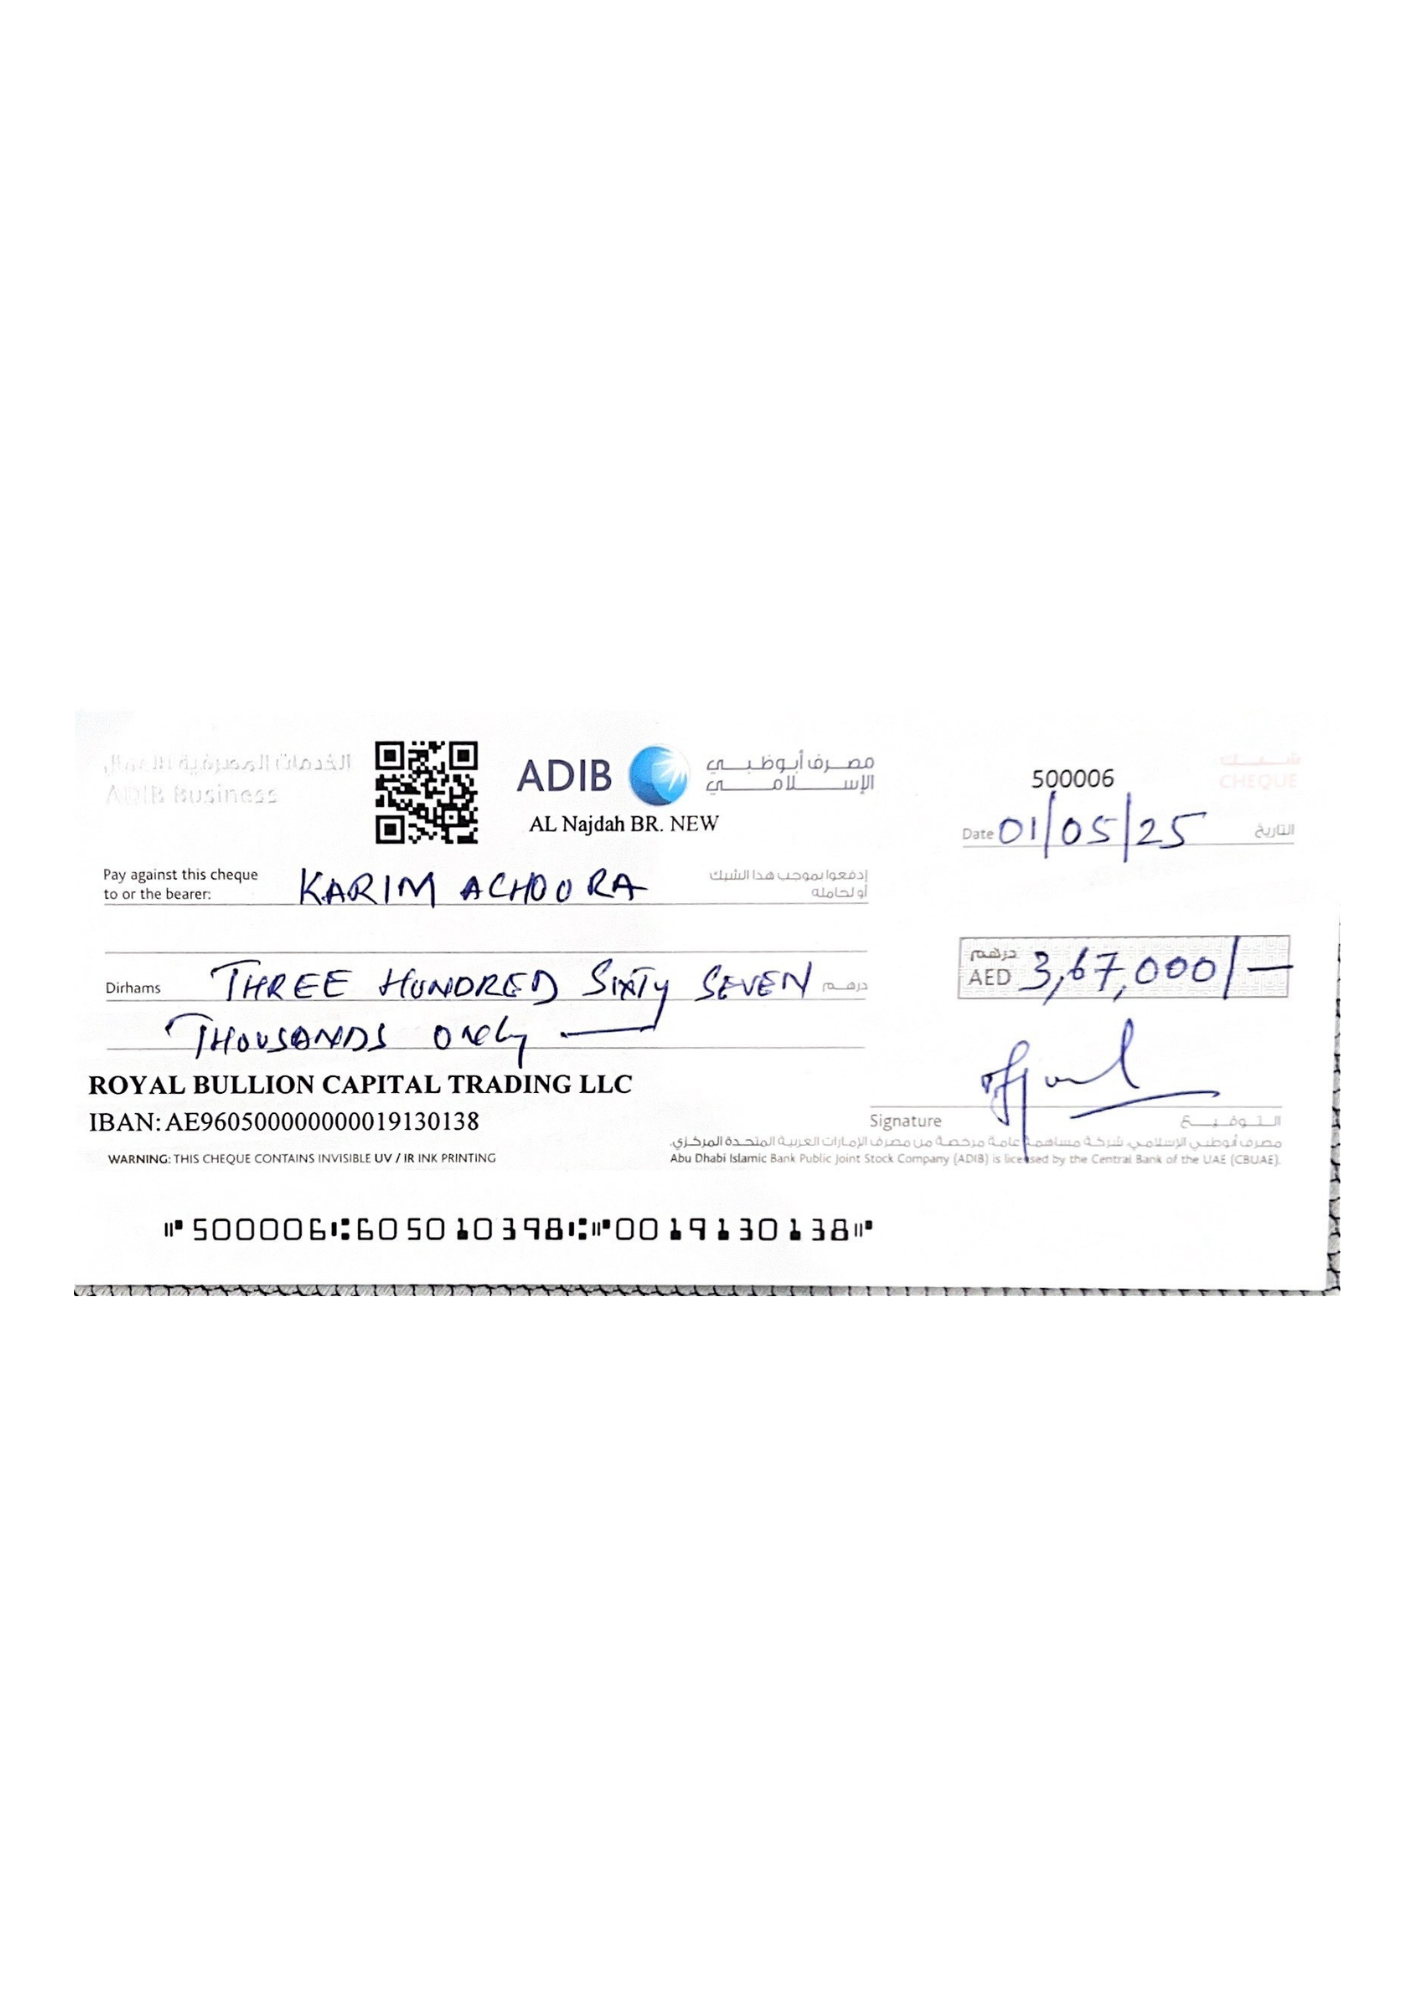 الخدمات المصرفية للأعمال
ADIB Business
ADIB
مصرف أبوظبي
الإسلامي
AL Najdah BR. NEW
500006
شيك
CHEQUE
Date 01/05/25 التاريخ
Pay against this cheque
to or the bearer:
KARIM ACHOORA
إدفعوا بموجب هذا الشيك
أو لحامله
Dirhams THREE HUNDRED SIXTY SEVEN درهم
THOUSANDS ONLY
درهم
AED 3,67,000/-
ROYAL BULLION CAPITAL TRADING LLC
IBAN: AE960500000000019130138
Signature التوقيع
WARNING: THIS CHEQUE CONTAINS INVISIBLE UV / IR INK PRINTING
مصرف أبوظبي الإسلامي، شركة مساهمة عامة مرخصة من مصرف الإمارات العربية المتحدة المركزي.
Abu Dhabi Islamic Bank Public Joint Stock Company (ADIB) is licensed by the Central Bank of the UAE (CBUAE).
⑈500006⑆605010398⑆⑈0019130138⑈